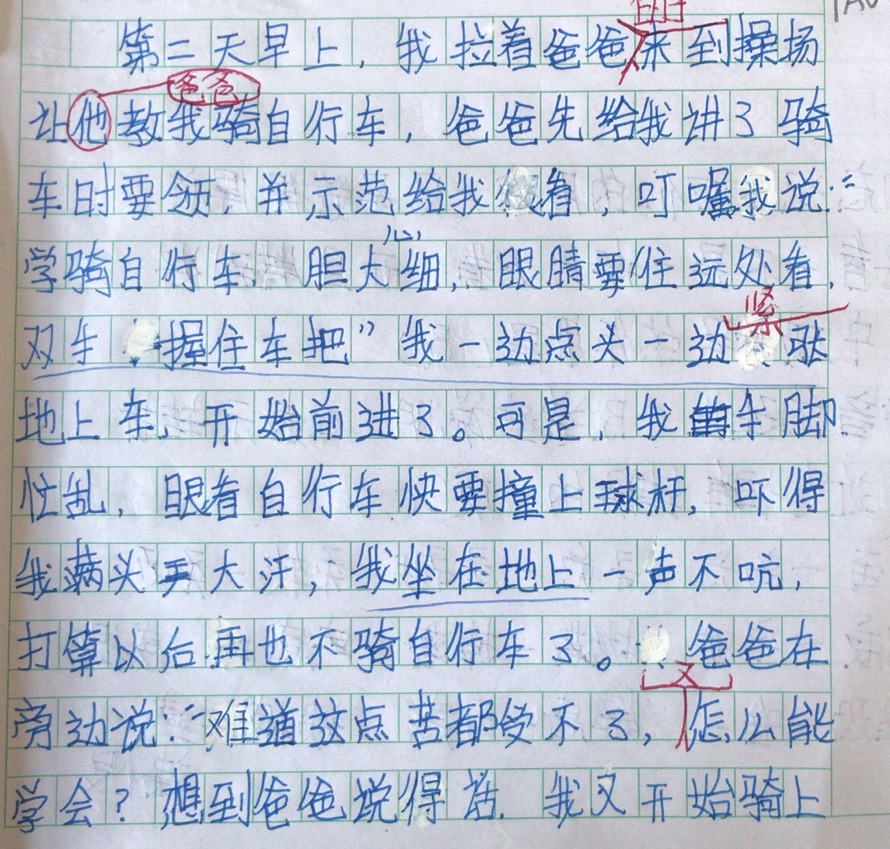 第二天早上，我拉着爸爸来到操场
爸爸
让他教我骑自行车，爸爸先给我讲了骑
车时要领，并示范给我看，叮嘱我说：“
心
学骑自行车，胆大细，眼睛要住远处看，
紧
双手握住车把”我一边点头一边张
地上车，开始前进了。可是，我手脚
忙乱，眼看自行车快要撞上球杆，吓得
我满头大汗，我坐在地上一声不吭，
打算以后再也不骑自行车了。爸爸在
又
旁边说：“难道这点苦都受不了，怎么能
学会？想到爸爸说得话．我又开始骑上